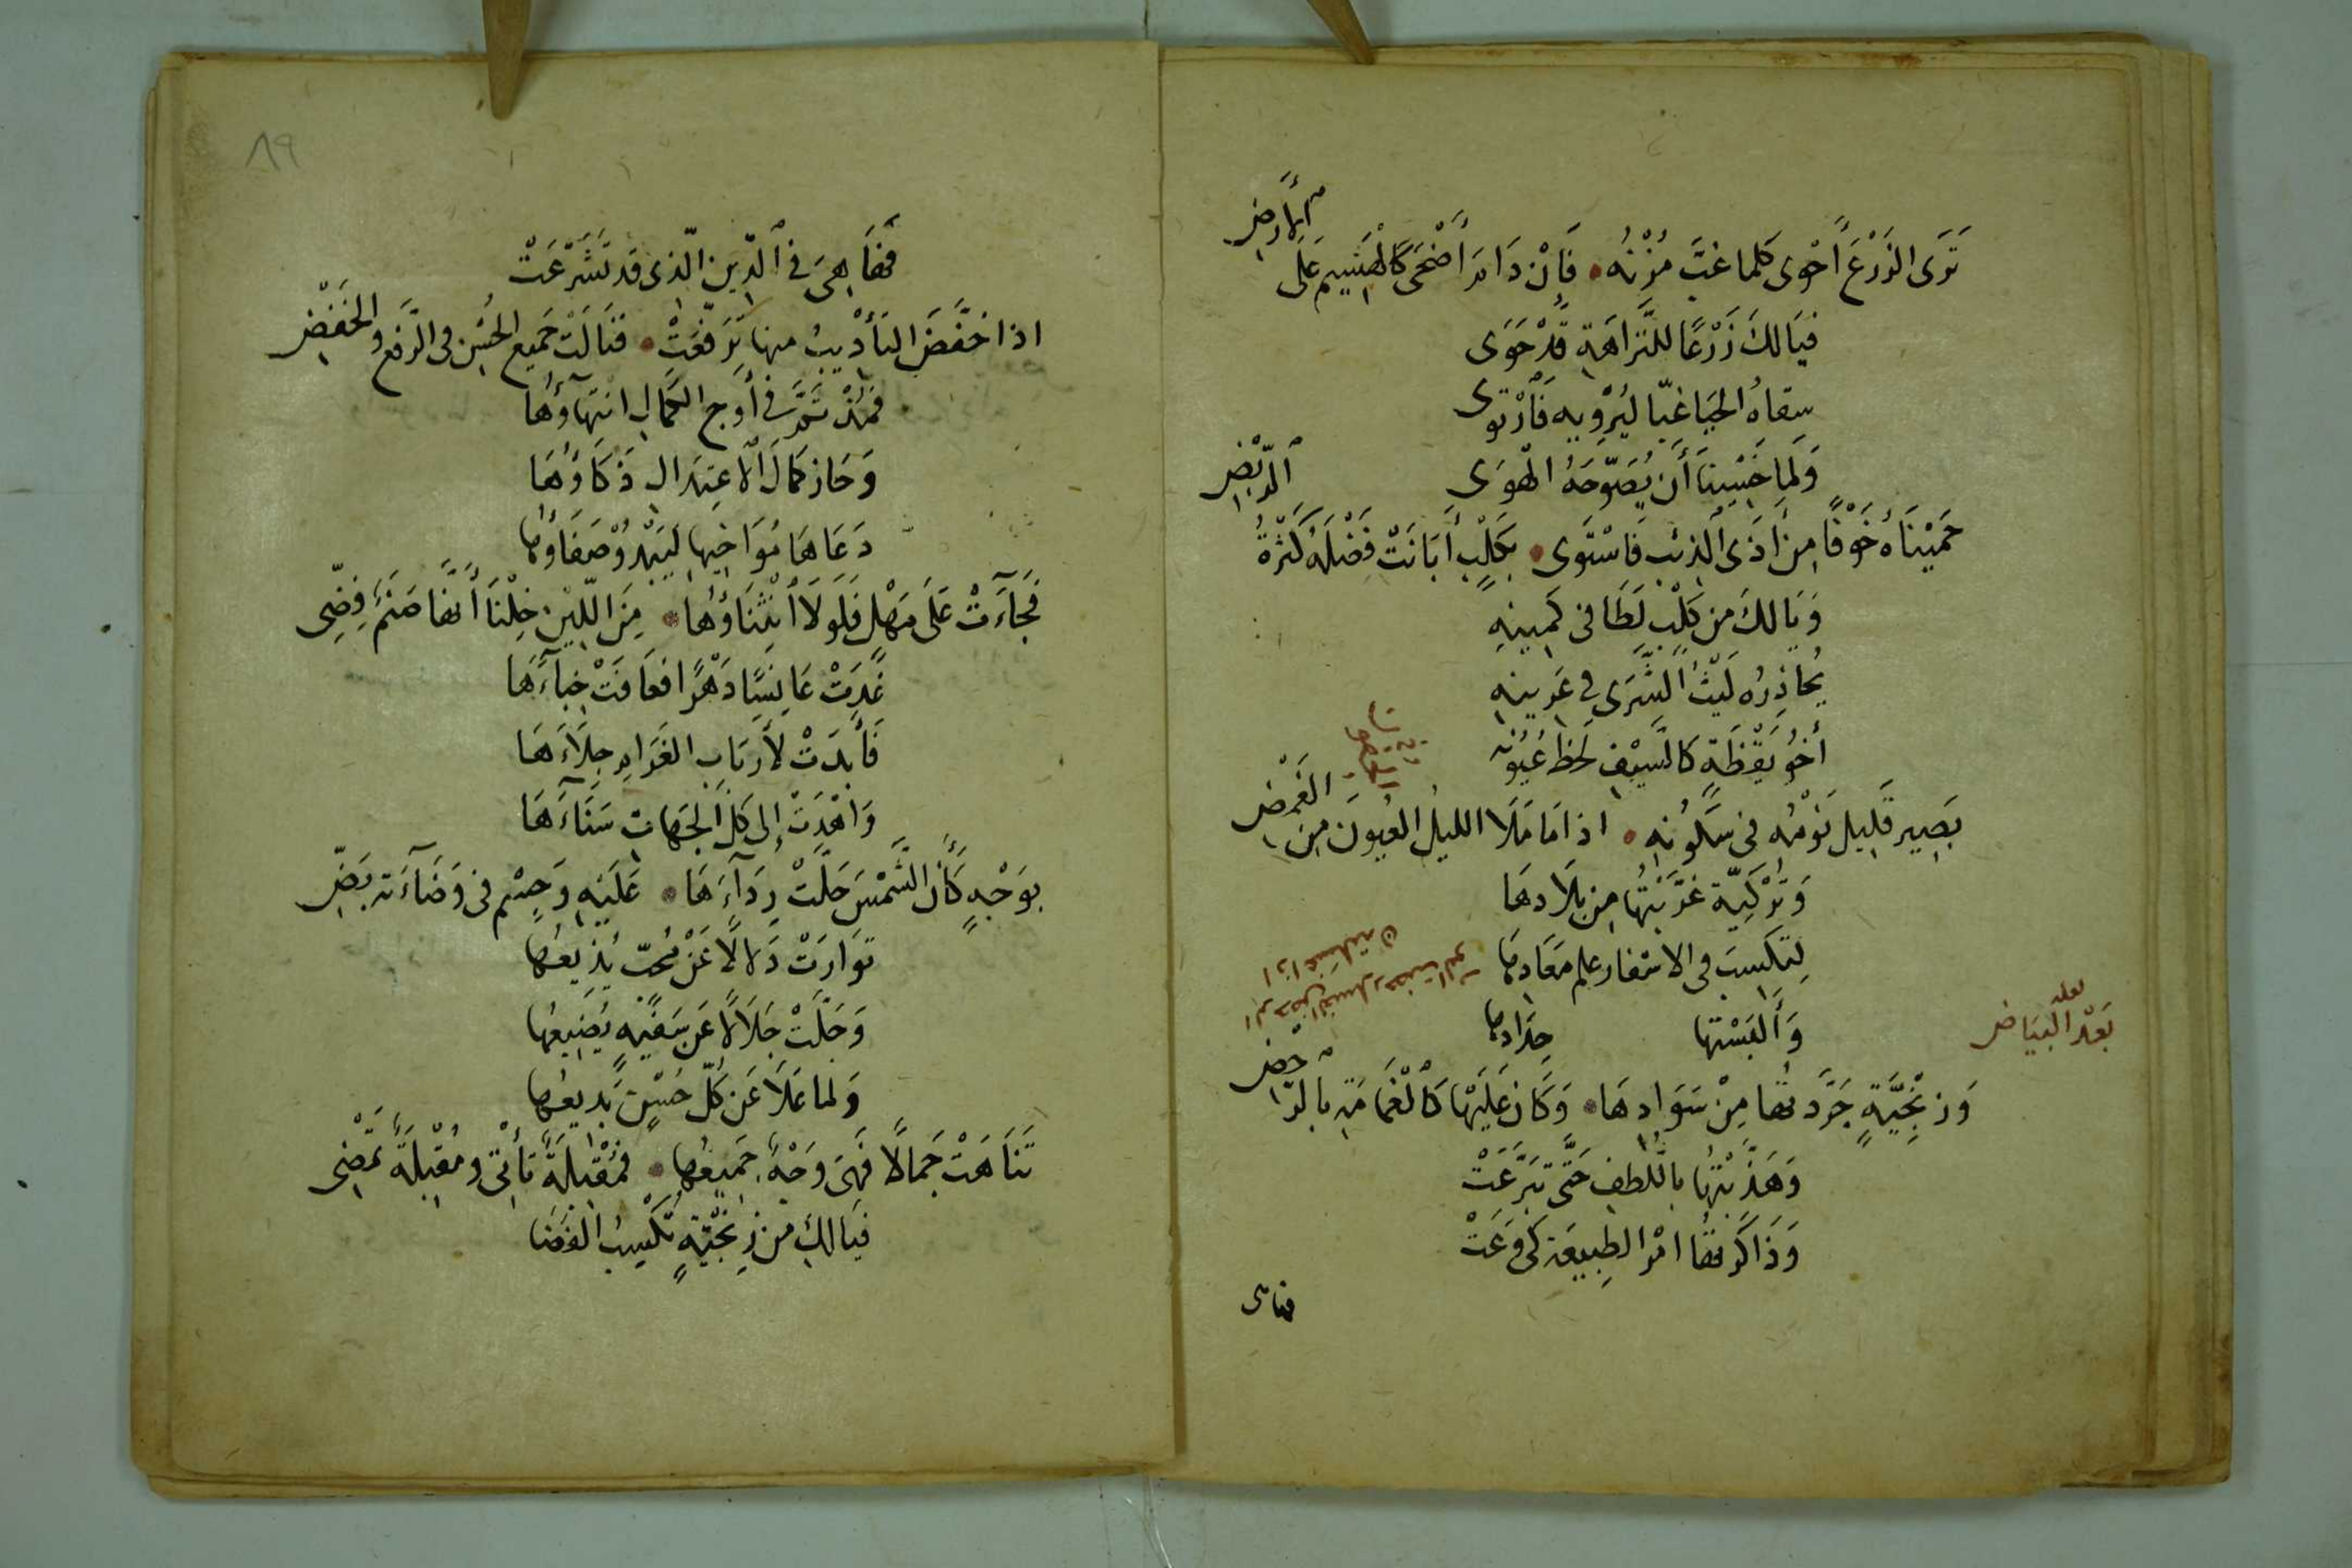 تَرَى الزَرْعَ أَحْوى كلما غبَّ مُزْنُه • فَإنْ دَامَ أَضْحَى كَالْهَشِيمِ عَلَى الأرضِ
فيَا لكَ زَرْعًا للنَّزاهَةِ قَدْ حَوَى
سقاهُ الحَيَا غبّا ليُرْوِيه فَارْتوى
وَلما خَشِينَا أَن يُصَوّحَهُ الهَوَى
حَمَيْنَاهُ خَوْفًا مِن أَذَى الذئبِ فَاسْتَوى • بكَلْبٍ أَبَانَتْ فَضْلَهُ كَثْرةُ الرَّبْضِ
وَيَا لكَ من كَلْبٍ لَطَا فى كَمِينِهِ
يُحاذِرُه لَيْثُ الشَّرَى فى عَرِينِه
أخُو يَقْظَةٍ كالسَّيفِ لَحظُ عُيُونِه
بَصِير قَلِيل نَوْمُه فى سكُونِه • اذا مَا مَلَا الليلُ العُيونَ مِن الغَمْضِ
وَتُرْكيّة غَرَّبْتُها مِن بلَادهَا
لِتكسِبَ فى الاسْفار علم مَعَادهَا
وَأَلبَسْتها حِدَادهَا
لعله
بَعْد البَيَاض
وَزِنْجِيَّةٍ جَرَّدتُها مِنْ سَوَادِهَا • وَكَان عَلَيْهَا كَالْغمَامَةِ بالرَّحْضِ
وَهَذَّبْتُها باللُّطفِ حَتَّى تبَرَّعَتْ
وَذَاكَرتُها امْرَ الطبِيعَة كَىْ وَعَتْ
فضاهى
٨٩
فضَاهىَ فى الدِّين الّذى قد تَشَرَّعَتْ
اذا خَفَّضَ التَأْدِيبُ منها تَرَفَّعَتْ • فنَالَتْ جَميع الحُسْنِ فى الرَّفعِ والخَفْضِ
فمُذْ تَمَّ فى أَوج الكَمالِ انتهَاؤُهَا
وَحَاز كَمالَ الاعتِدَالِ ذَكَاؤُهَا
دَعَاهَا مُوَاخيها ليَبْدُوْ صَفَاؤُهَا
فَجَآءَتْ عَلَى مَهْلٍ فَلَولَا انْثِنَاؤُهَا • مِنَ اللّينِ خِلْنَا أَنّها صَنَمٌ فِضِّى
غَدَتْ عَانِسًا دَهْرًا فعَافَتْ خِبآءَهَا
فَأَبدَتْ لأَربَابِ الغَرَامِ جِلَاءَهَا
وَاهْدَتْ إلى كلّ الجهَاتِ سَنَاءَهَا
بوَجْهٍ كَأَنَّ الشَّمْسَ حَلَّتْ رِدَآءَهَا • عَلَيْهِ وَجِسْم فى وَضَآءَته بَضِّ
توَارَتْ دَلالًا عَنْ مُحبّ يُذِيعُها
وَجَلَّتْ جَلَالًا عَن سَفِيْهٍ يُضِيعُها
وَلما عَلَا عَن كُلّ حُسْنٍ بَدِيعُها
تَنَاهَتْ جَمالًا فَهىَ وَجْهٌ جَميعُها • فمُقْبِلَةً تَأتِى ومُقْبِلَةً تَمْضِى
فيَا لكَ من زِنجيَّةٍ تُكْسِبُ الفَضَا